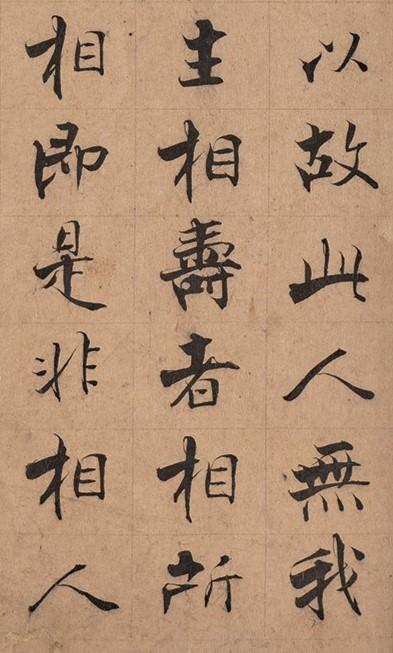 以故此人無我
生相壽者相所
相即是非相人